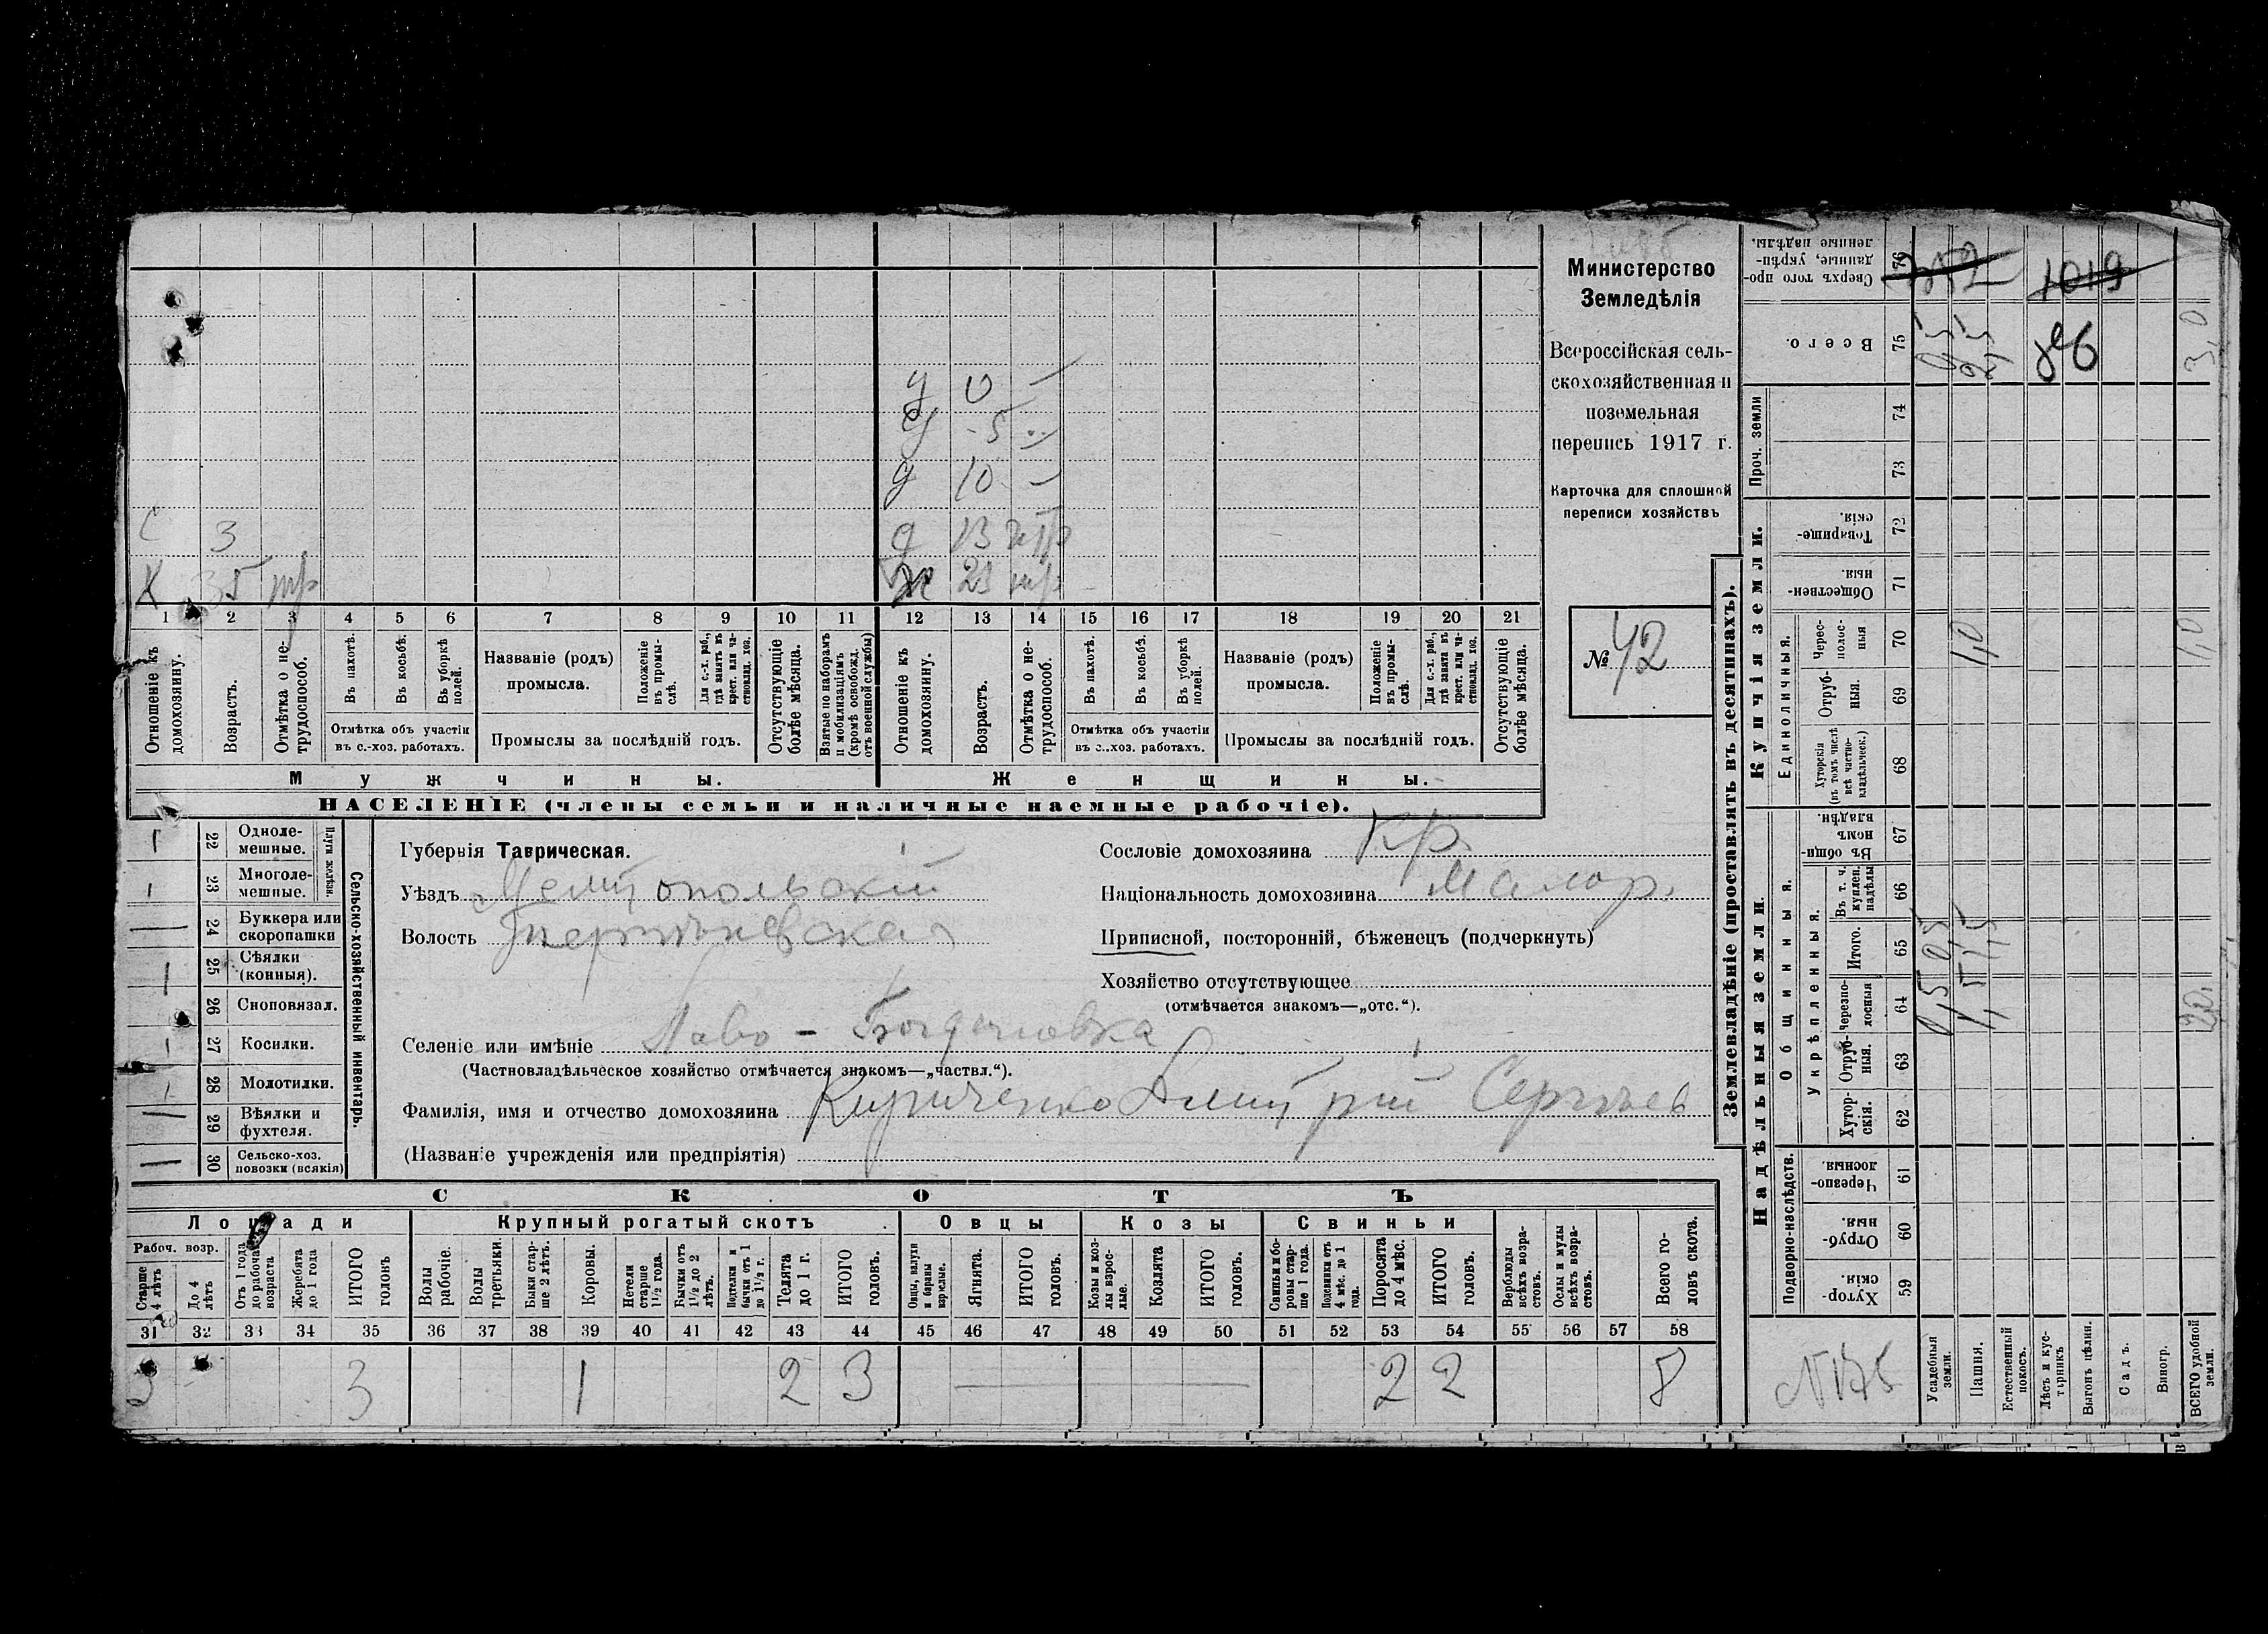 Министерство
Земледѣлія
Всероссійская сель-
скохозяйственная и
поземельная
перепись 1917 г.
Карточка для сплошной
переписи хозяйствъ
№ 42
д 0 —
д 5
д 10 —
С 3
д 13
Х 35 тр
ж 23 тр
1 2 3 4 5 6 7 8 9 10 11 12 13 14 15 16 17 18 19 20 21
Отношеніе къ домохозяину.
Возрастъ.
Отмѣтка о не-трудоспособ.
Въ пахотѣ.
Въ косьбѣ.
Въ уборкѣ полей.
Отмѣтка объ участіи
въ с.-хоз. работахъ.
Названіе (родъ)
промысла.
Положеніе въ промы-слѣ.
Для с.-х. раб., гдѣ занятъ въ крест. или ча-стновлад. хоз.
Промыслы за послѣдній годъ.
Отсутствующіе болѣе мѣсяца.
Взятые по наборамъ и мобилизаціямъ (кромѣ освобожд. отъ военной службы)
Отношеніе къ домохозяину.
Возрастъ.
Отмѣтка о не-трудоспособ.
Въ пахотѣ.
Въ косьбѣ.
Въ уборкѣ полей.
Отмѣтка объ участіи
въ с.-хоз. работахъ.
Названіе (родъ)
промысла.
Положеніе въ промы-слѣ.
Для с.-х. раб., гдѣ занята въ крест. или ча-стновлад. хоз.
Промыслы за послѣдній годъ.
Отсутствующіе болѣе мѣсяца.
Мужчины. Женщины.
НАСЕЛЕНІЕ (члены семьи и наличные наемные рабочіе).
Сельско-хозяйственный инвентарь.
Плуги желѣзн.
22 Одноле-мешные.
23 Многоле-мешные.
24 Буккера или скоропашки
25 Сѣялки (конныя).
26 Сноповязал.
27 Косилки.
28 Молотилки.
29 Вѣялки и фухтеля.
30 Сельско-хоз. повозки (всякія)
Губернія Таврическая.
Уѣздъ Мелитопольскій
Волость
Селеніе или имѣніе Ново-Богдановка
(Частновладѣльческое хозяйство отмѣчается знакомъ—„частвл.“).
Фамилія, имя и отчество домохозяина Кириченко Дмитрій Сергѣевъ
(Названіе учрежденія или предпріятія)
Сословіе домохозяина Кр.
Національность домохозяина Малор.
Приписной, посторонній, бѣженецъ (подчеркнуть)
Хозяйство отсутствующее
(отмѣчается знакомъ—„отс.“).
СКОТЪ
Лошади Крупный рогатый скотъ Овцы Козы Свиньи
Рабоч. возр.
Старше 4 лѣтъ
До 4 лѣтъ
Отъ 1 года до рабочаго возраста
Жеребята до 1 года
ИТОГО головъ
Волы рабочіе.
Волы третьяки.
Быки стар-ше 2 лѣтъ.
Коровы.
Нетели старше 1½ года.
Бычки отъ 1½ до 2 лѣтъ.
Подтелки и бычки отъ 1 до 1½ г.
Телята до 1 г.
ИТОГО головъ.
Овцы, валухи и бараны взрослые.
Ягнята.
ИТОГО головъ.
Козы и коз-лы взрос-лые.
Козлята
ИТОГО головъ.
Свиньи и бо-ровы стар-ше 1 года.
Подсвинки отъ 4 мѣс. до 1 года.
Поросята до 4 мѣс.
ИТОГО головъ.
Верблюды всѣхъ возра-стовъ.
Ослы и мулы всѣхъ возра-стовъ.
Всего го-ловъ скота.
31 32 33 34 35 36 37 38 39 40 41 42 43 44 45 46 47 48 49 50 51 52 53 54 55 56 57 58
3 3 1 2 3 2 2 8
Землевладѣніе (проставлять въ десятинахъ).
Надѣльныя земли
Купчія земли.
Проч. земли
Подворно-наслѣдств.
Общинныя.
Укрѣпленныя.
Единоличныя.
59 Хутор-скія
60 Отруб-ныя.
61 Черезпо-лосныя.
62 Хутор-скія.
63 Отруб-ныя.
64 Черезпо-лосныя
65 Итого.
66 Въ т. ч. куплен. надѣлы
67 Въ общи-номъ владѣн.
68 Хуторскія (въ томъ числѣ всѣ частно-владѣльческ.)
69 Отруб-ныя.
70 Черес-полос-ныя
71 Обществен-ныя.
72 Товарище-скія.
73
74
75 Всего.
76 Сверхъ того про-данные, укрѣп-ленные надѣлы.
Усадебныя земли.
Пашня.
Естественный покосъ.
Лѣсъ и кус-тарникъ
Выгонъ цѣлин.
Садъ.
Виногр.
ВСЕГО удобной земли.
0,5 0,5
1,5 1,5
1,0
1,0
3,0
1019
№ 175